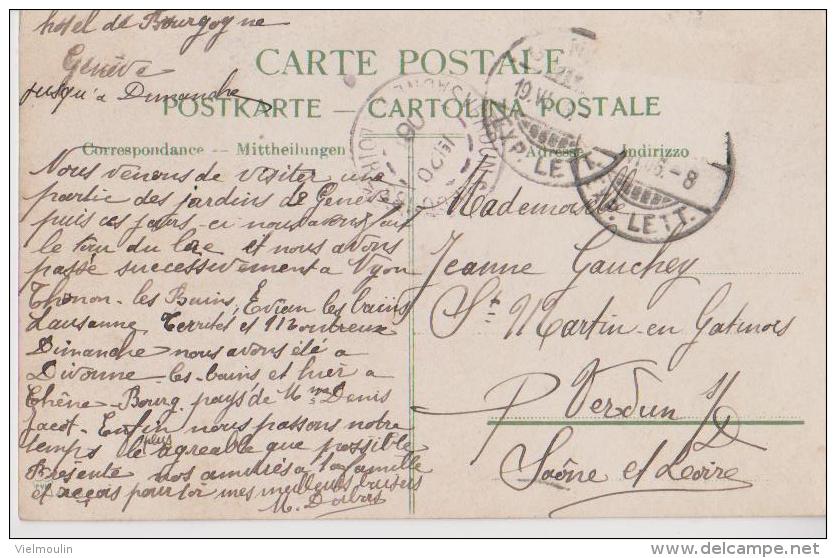 hôtel de Bourgogne
Genève
jusqu'à Dimanche
CARTE POSTALE
POSTKARTE — CARTOLINA POSTALE
Correspondance - Mittheilungen
Adresse - Indirizzo
Nous venons de visiter une
partie des jardins de Genève
puis ces jours-ci nous avons fait
le tour du lac et nous avons
passé successivement a Nyon
Thonon-les Bains, Evian les bains
Lausanne Territet et Montreux
Dimanche nous avons été a
Divonne-les-bains et hier a
Chêne-Bourg pays de Mme Denis
Jacot - Enfin nous passons notre
temps le plus agreable que possible
Presente nos amitiés a ta famille
et reçois pour toi mes meilleurs baisers
Mademoiselle
Jeanne Gauchey
St Martin-en Gatinois
P. Verdun s/D
Saône et Loire
EXP. LETT.
19.VI
EXP. LETT.
-8
Vielmoulin
delcampe.net